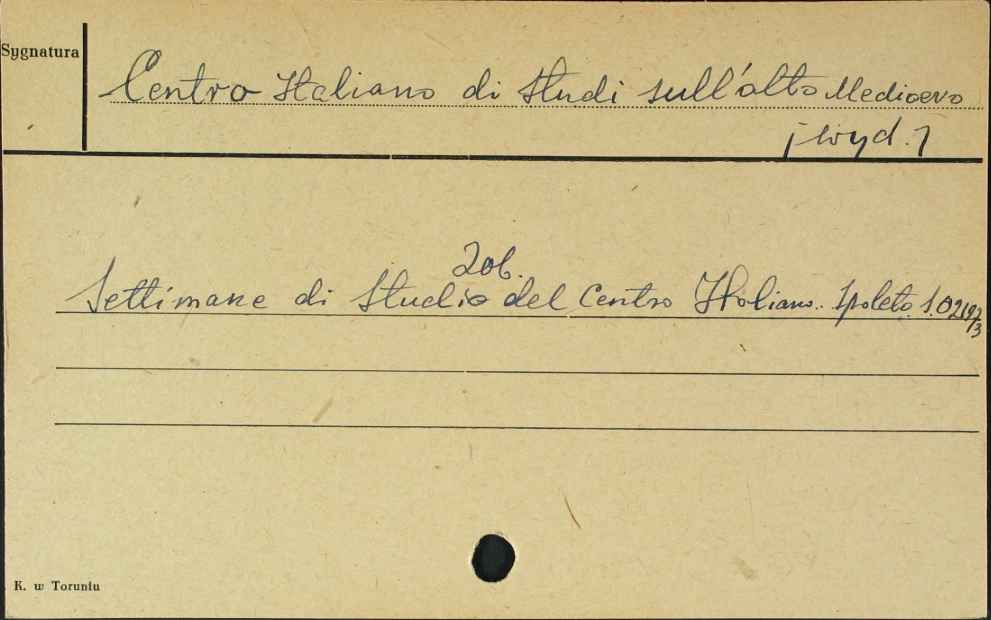 Sygnatura
Centro Italiano di Studi sull'alto Medioevo
[wyd.]
Zob.
Settimane di Studio del Centro Italiano. Spoleto
K. w Toruniu